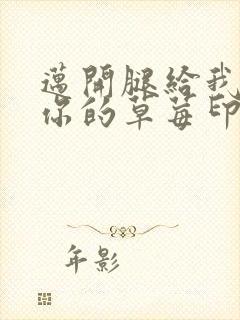 邁開腿給我
你的草莓印
年影